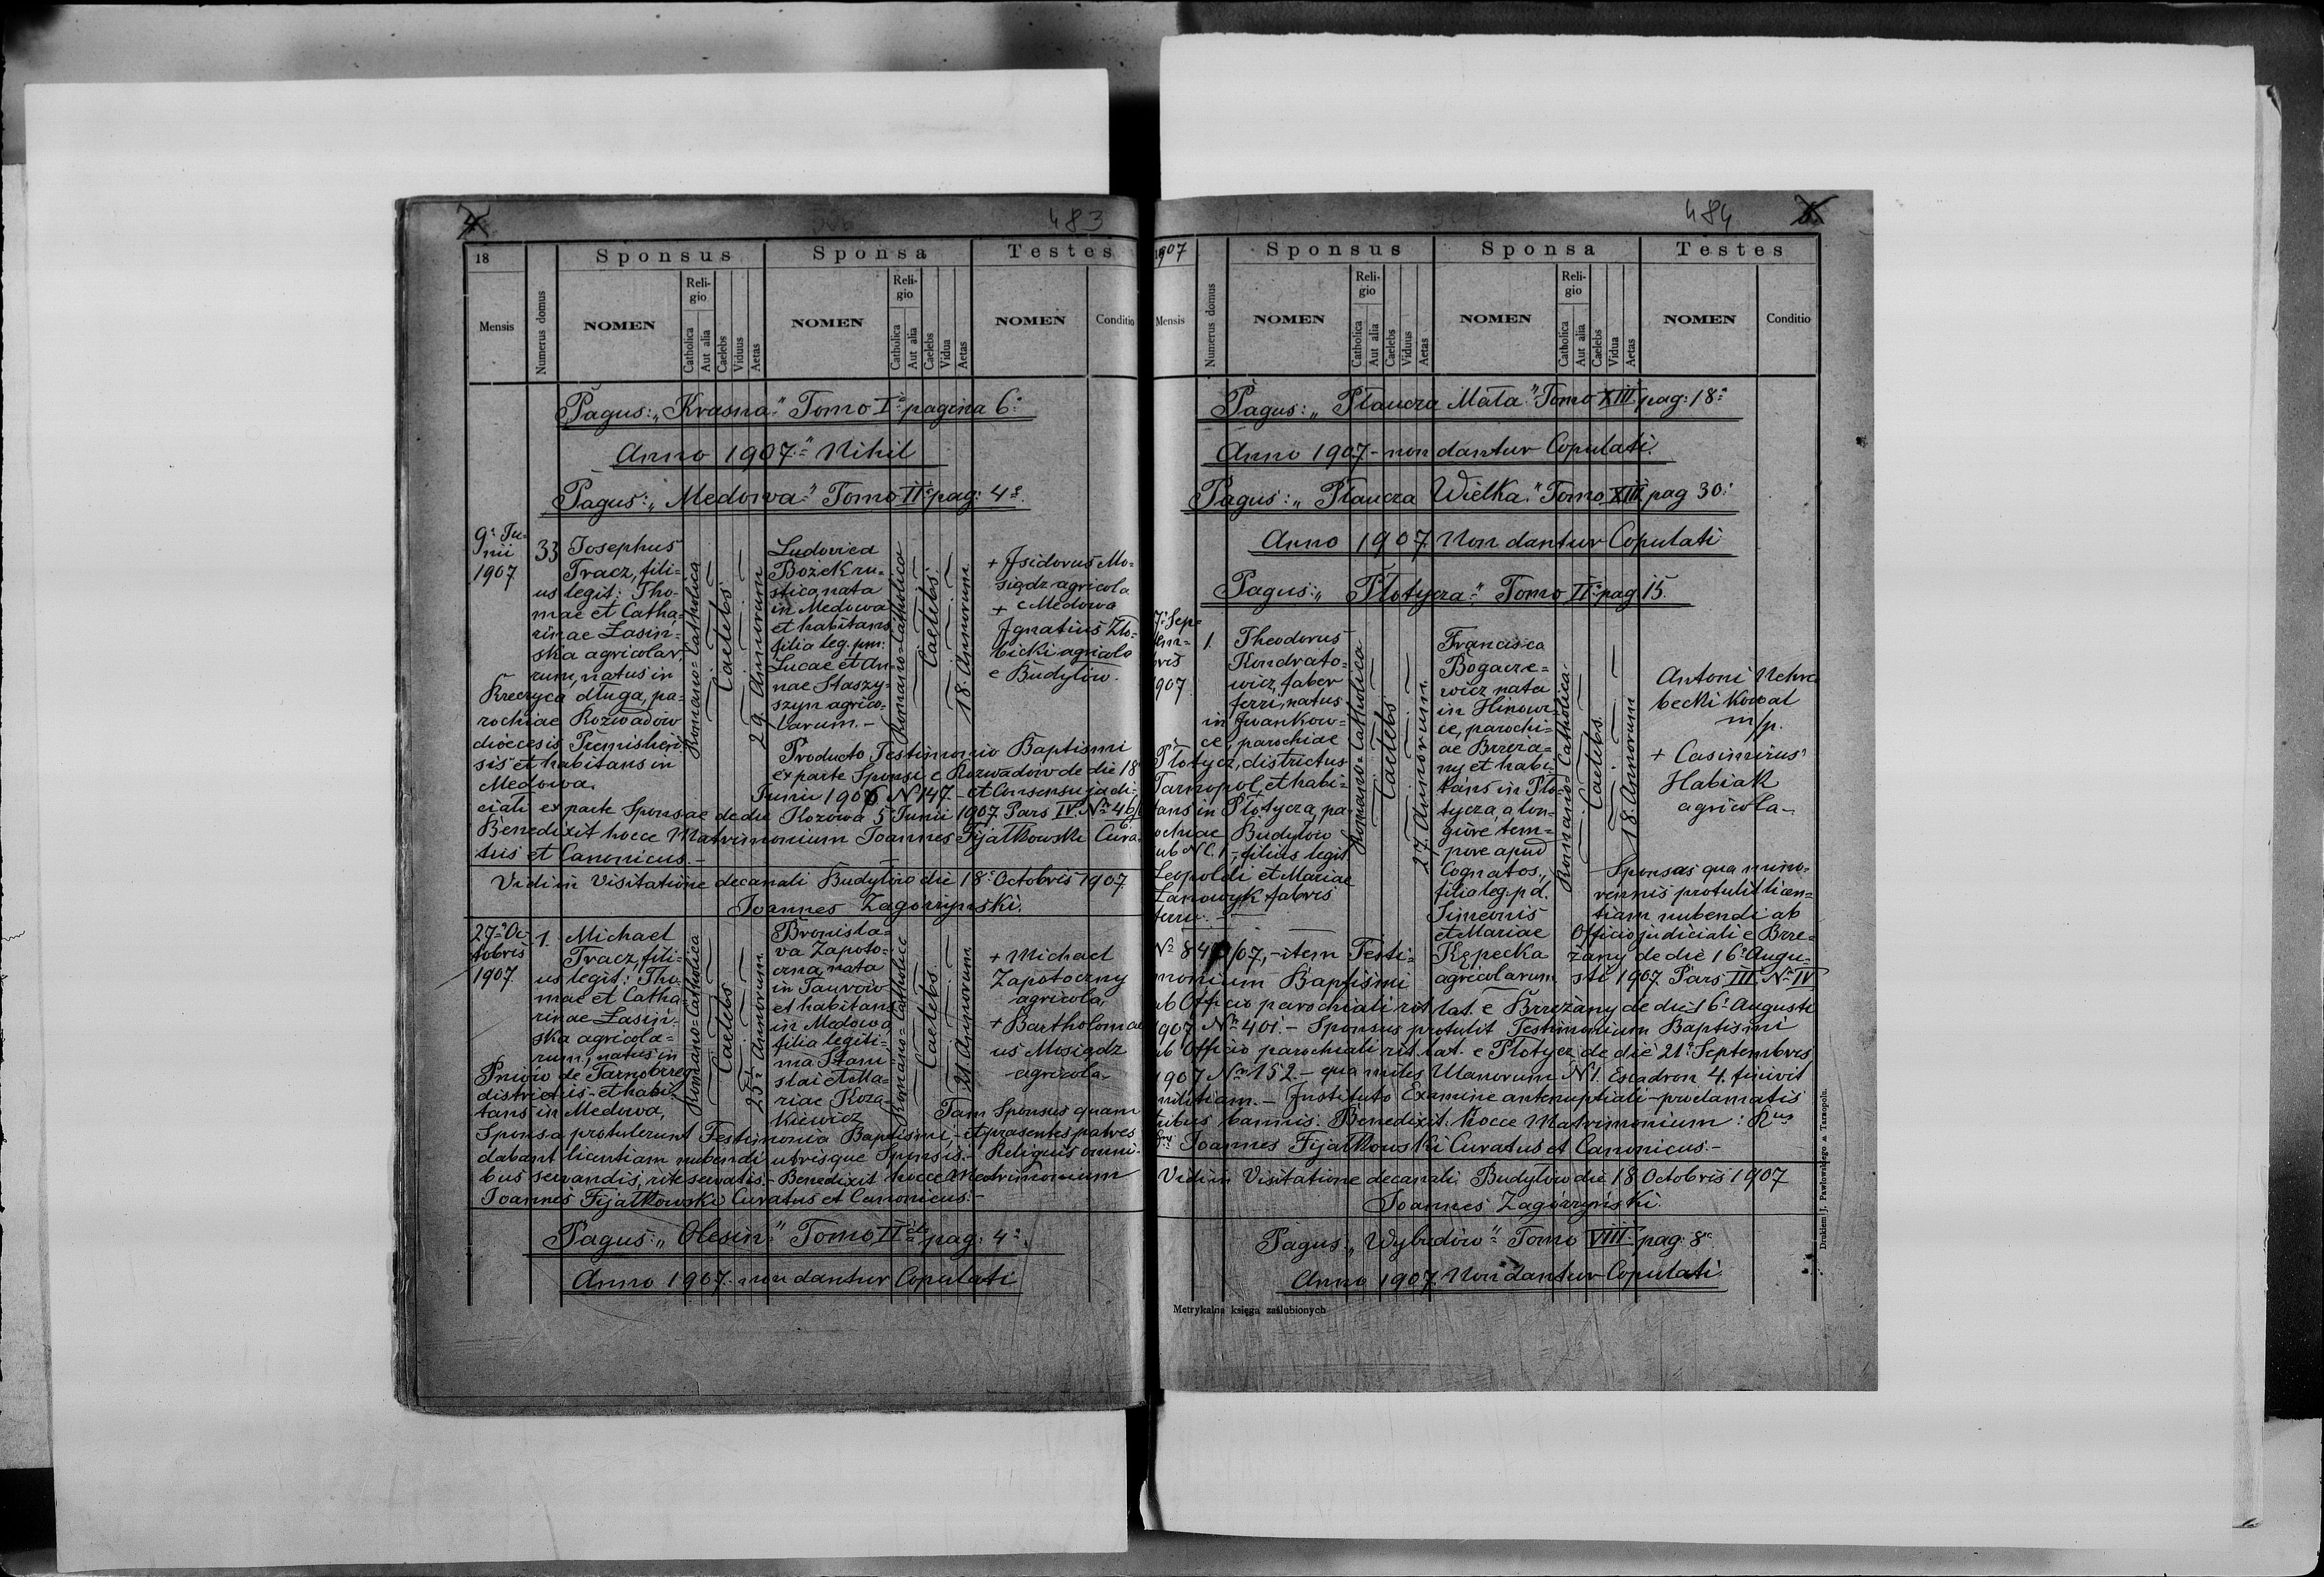 4
483
18
Sponsus
Sponsa
Testes
Mensis
Numerus domus
NOMEN
Religio
Catholica
Aut alia
Caelebs
Viduus
Aetas
NOMEN
Religio
Catholica
Aut alia
Caelebs
Vidua
Aetas
NOMEN
Conditio
Pagus: „Krasna" Tomo I pagina 6
Anno 1907 Nihil
Pagus: „Medowa" Tomo II pag: 4
9 Ju-
nii
1907
33
Josephus
Tracz, fili-
us legit: Tho-
mae et Catha-
rinae Łasiń-
ska agricola-
rum, natus in
Krzeczyca długa, pa-
rochiae Rozwadów
dioecesis Premislien-
sis et habitans in
Medowa.
Romano-Catholica
Caelebs
29. Annorum
Ludovica
Bożek ru-
stica, nata
in Medowa
et habitans
filia leg. pm:
Lucae et An-
nae Staszy-
szyn agrico-
larum. -
Romano-Catholica
Caelebs
18. Annorum
+ Isidorus Mo-
siądz agricola
+ e Medowa
Ignatius Zło-
bicki agricola
e Budylów.
Producto Testimonio Baptismi
ex parte Sponsi e Rozwadów de die 18
Junii 1906 N 147 - et Consensu judi-
ciali ex parte Sponsae de die Kozowa 5 Junii 1907 Pars IV. Nr 46/6
Benedixit hocce Matrimonium Joannes Fijałkowski Cura-
tus et Canonicus. -
Vidi in Visitatione decanali Budylów die 18 Octobris 1907
Joannes Zagórzyński.
27 Oc-
tobris
1907
1.
Michael
Tracz, fili-
us legit: Tho-
mae et Catha-
rinae Łasiń-
ska agricola-
rum, natus in
Pniów de Tarnobrzeg
districtus - et habi-
tans in Medowa,
Romano-Catholica
Caelebs
25 Annorum
Bronisła-
va Zapoto-
czna, nata
in Taurów
et habitans
in Medowa
filia legiti-
ma Stani-
slai et Ma-
riae Koza-
kiewicz
Romano-Catholica
Caelebs
21. Annorum
+ Michael
Zapotoczny
agricola,
+ Bartholomae-
us Mosiądz
agricola
Tam Sponsus quam
Sponsa protulerunt Testimonia Baptismi, - et praesentes patres
dabant licentiam nubendi utrisque Sponsis. - Reliquis omni-
bus servandis, rite servatis. - Benedixit hocce Matrimonium
Joannes Fijałkowski Curatus et Canonicus. -
Pagus: „Olesin" Tomo II pag: 4
Anno 1907 non dantur Copulati
484
1907
Sponsus
Sponsa
Testes
Mensis
Numerus domus
NOMEN
Religio
Catholica
Aut alia
Caelebs
Viduus
Aetas
NOMEN
Religio
Catholica
Aut alia
Caelebs
Vidua
Aetas
NOMEN
Conditio
Pagus: „Płaucza Mała" Tomo XIII pag: 18
Anno 1907 - non dantur Copulati.
Pagus: „Płaucza Wielka" Tomo XIII pag 30
Anno 1907. Non dantur Copulati
Pagus: „Płotycza" Tomo II pag 15.
Sep-
tem-
bris
907
1.
Theodorus
Kondrato-
wicz, faber
ferri, natus
in Iwankow-
ce, parochiae
Płotycz, districtus
Tarnopol, et habi-
tans in Płotycza, pa-
ochiae Budylów
ub NC. 1, filius legit
Leopoldi et Mariae
Łanowyk fabris
ferri. -
Romano-Catholica
Caelebs
27. Annorum
Francisca
Bogacze-
wicz nata
in Hinowi-
ce, parochi-
ae Brzeża-
ny et habi-
tans in Pło-
tycza, a lon-
giore tem-
pore apud
Cognatos,
filia leg. pd.
Simeonis
et Mariae
Kępecka
agricolarum
Romano-Catholica
Caelebs
18. Annorum
Antoni
becki Kowal
m/p.
+ Casimirus
Habiak
agricola -
Sponsas qua mino-
rennis protulit licen-
tiam nubendi ab
Officio judiciali e Brze-
żany de die 16 Augu-
sti 1907 Pars III. Nr IV
/07, - item Testi-
monium Baptismi
ab Officio parochiali rit. lat. e Brzeżany de die 16 Augusti
1907 Nr 401. - Sponsus protulit Testimonium Baptismi
ab Officio parochiali rit. lat. e Płotycz de die 21 Septembris
1907 Nr 152. - qua miles Ulanorum N 1. Escadron 4. finivit
militiam. - Instituto Examine antenuptiali - proclamatis
tribus bannis. Benedixit hocce Matrimonium:
Joannes Fijałkowski Curatus et Canonicus. -
Vidi in Visitatione decanali Budylów die 18 Octobris 1907
Joannes Zagórzyński.
Pagus: „Wybudów" Tomo VIII pag: 8
Anno 1907 Non dantur Copulati
Metrykalna księga zaślubionych
Drukiem J. Pawłowskiego w Tarnopolu.